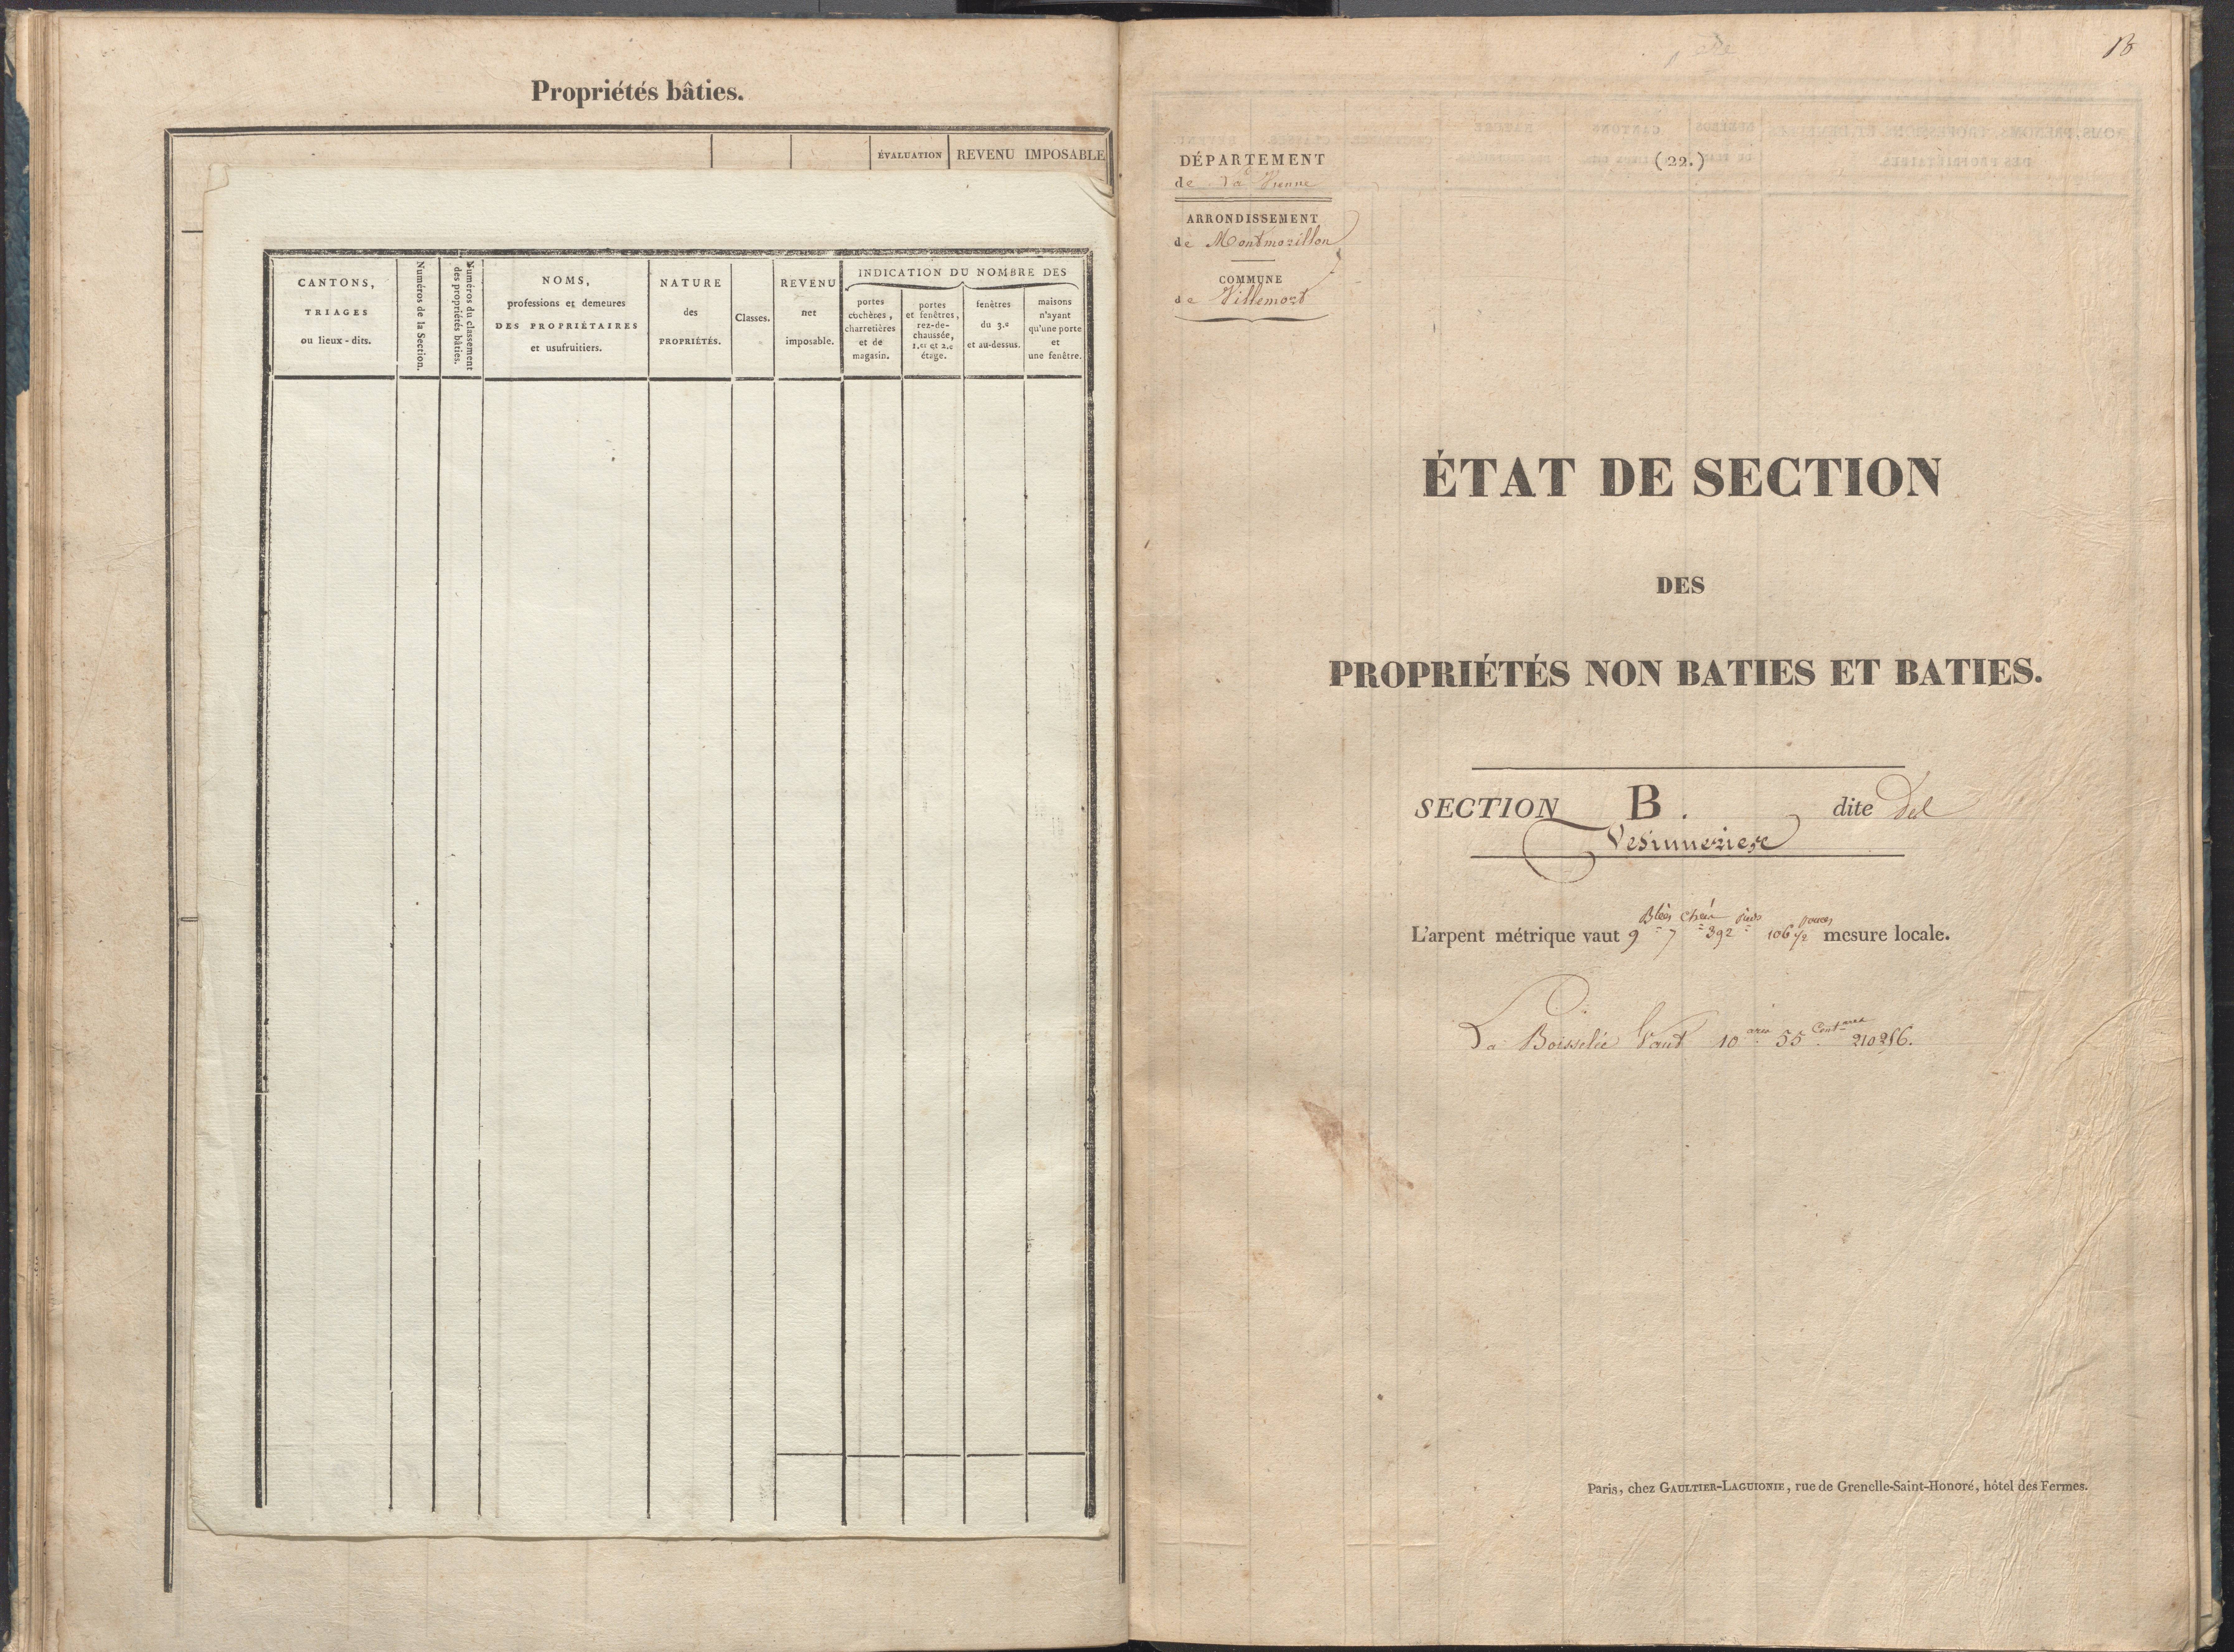 Propriétés bâties.
ÉVALUATION
REVENU IMPOSABLE
CANTONS,
TRIAGES
ou lieux-dits.
Numéros de la Section.
Numéros du classement
des propriétés bâties.
NOMS,
professions et demeures
DES PROPRIÉTAIRES
et usufruitiers.
NATURE
des
PROPRIÉTÉS.
Classes.
REVENU
net
imposable.
INDICATION DU NOMBRE DES
portes
cochères,
charretières
et de
magasin.
portes
et fenêtres,
rez-de-
chaussée,
1.er et 2.e
étage.
fenêtres
du 3.e
et au-dessus.
maisons
n'ayant
qu'une porte
et
une fenêtre.
B
(22.)
DÉPARTEMENT
de La Vienne
ARRONDISSEMENT
de Montmorillon
COMMUNE
de Villemort
ÉTAT DE SECTION
DES
PROPRIÉTÉS NON BATIES ET BATIES.
SECTION B. dite
L'arpent métrique vaut 9 7 392 106 1/2 mesure locale.
La Boisselée Vaut 10 ares 55 Cent ares 210286.
Paris, chez GAULTIER-LAGUIONIE, rue de Grenelle-Saint-Honoré, hôtel des Fermes.